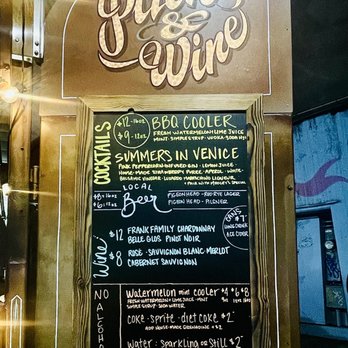 & Wine
COCKTAILS
$12-16oz
$9-12oz
BBQ COOLER
FRESH WATERMELON LIME JUICE
MINT SIMPLE SYRUP VODKA SODA
SUMMERS IN VENICE
PINK PEPPERCORN INFUSED GIN - LEMON JUICE
HOUSE-MADE STRAWBERRY PUREE
BALSAMIC VINEGAR - LUXARDO MARASCHINO LIQUEUR
LOCAL
Beer
$8-16oz
$6-12oz
PIGEONHEAD - RED RYE LAGER
PIGEON HEAD - PILSNER
CANS
$7
LONG DRINK
ACE CIDER
Wine
$12
FRANK FAMILY CHARDONNAY
BELLE GLOS PINOT NOIR
$8
ROSE - SAUVIGNON BLANC - MERLOT
CABERNET SAUVIGNON
NO ALCOHOL
Watermelon mint cooler
FRESH WATERMELON & LIME JUICE - MINT
SIMPLE SYRUP - SODA WATER
coke - sprite - diet coke $2
ADD HOUSE-MADE GRENADINE $2
Water: Sparkling or Still $2